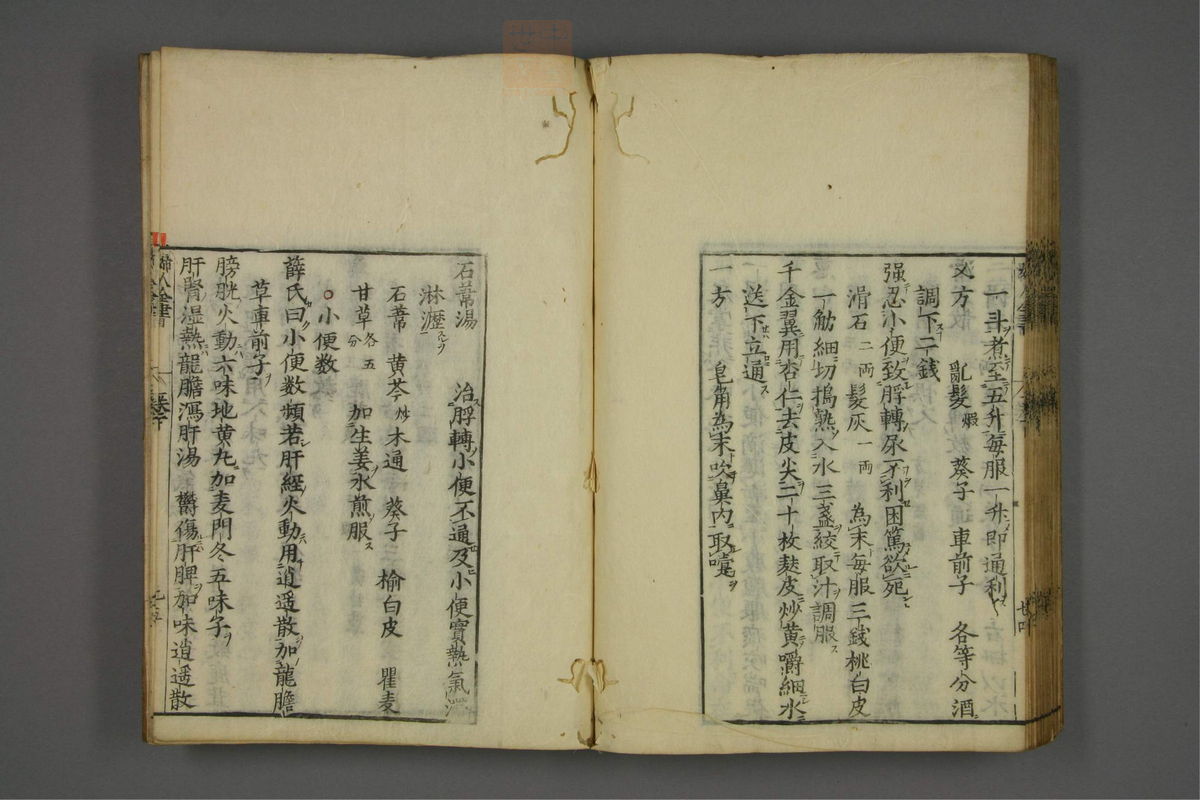 一斗煮至五升每服一升即通利
又方　亂髮煆　葵子　車前子　各等分酒
調下二錢
强忍小便致脬轉尿不利困篤欲死
滑石二両　髮灰一両　為末每服三錢桃白皮
一觔細切搗熟入水三盞絞取汁調服
千金翼用杏仁去皮尖二十枚麸皮炒黄嚼細水
送下立通
一方　皂角為末吹鼻内取嚏
石葦湯　治脬轉小便不通及小便實熱氣
淋瀝
石葦　黄芩炒　木通　葵子　榆白皮　瞿麦
甘草各五分　加生姜水煎服
○小便数
薛氏曰小便数頻若肝経火動用逍遥散加龍膽
草車前子
膀胱火動六味地黄丸加麦門冬五味子
肝腎湿熱龍膽瀉肝湯　欝傷肝脾加味逍遥散